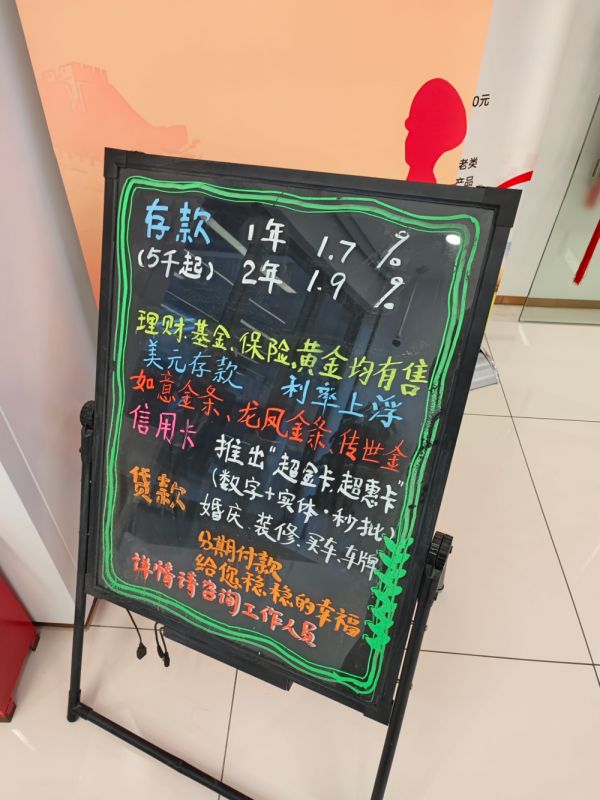 0元
老类
产品
存款 1年 1.7 %
(5千起) 2年 1.9 %
理财.基金、保险、黄金均有售
美元存款 利率上浮
如意金条、龙凤金条、传世金
信用卡 推出"超金卡、超惠卡"
(数字+实体·秒批)
贷款 婚庆、装修、买车、车牌
分期付款
给您稳稳的幸福
详情请咨询工作人员